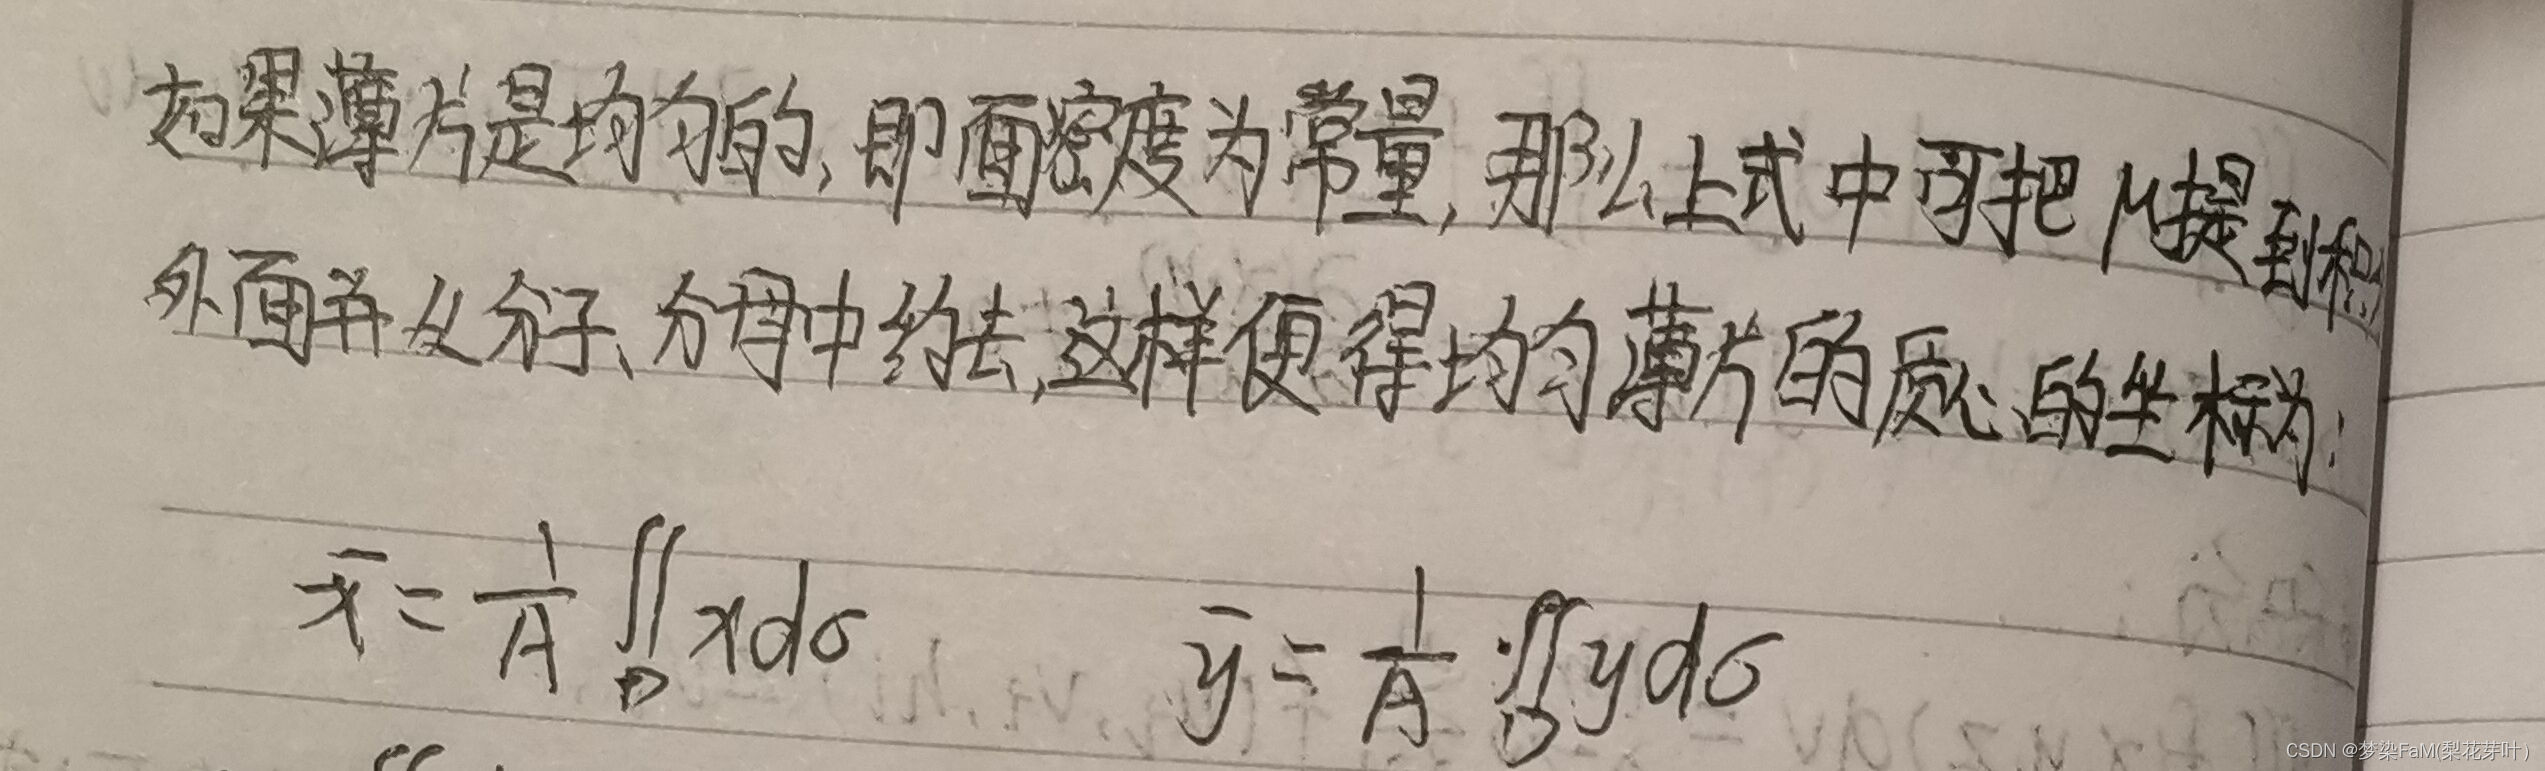 如果薄片是均匀的,即面密度为常量,那么上式中可把μ提到积
外面并从分子、分母中约去,这样便得均匀薄片的质心的坐标为:
x̄ = 1/A ∬_D x dσ    ȳ = 1/A ∬_D y dσ
CSDN @梦染FaM(梨花芽叶)